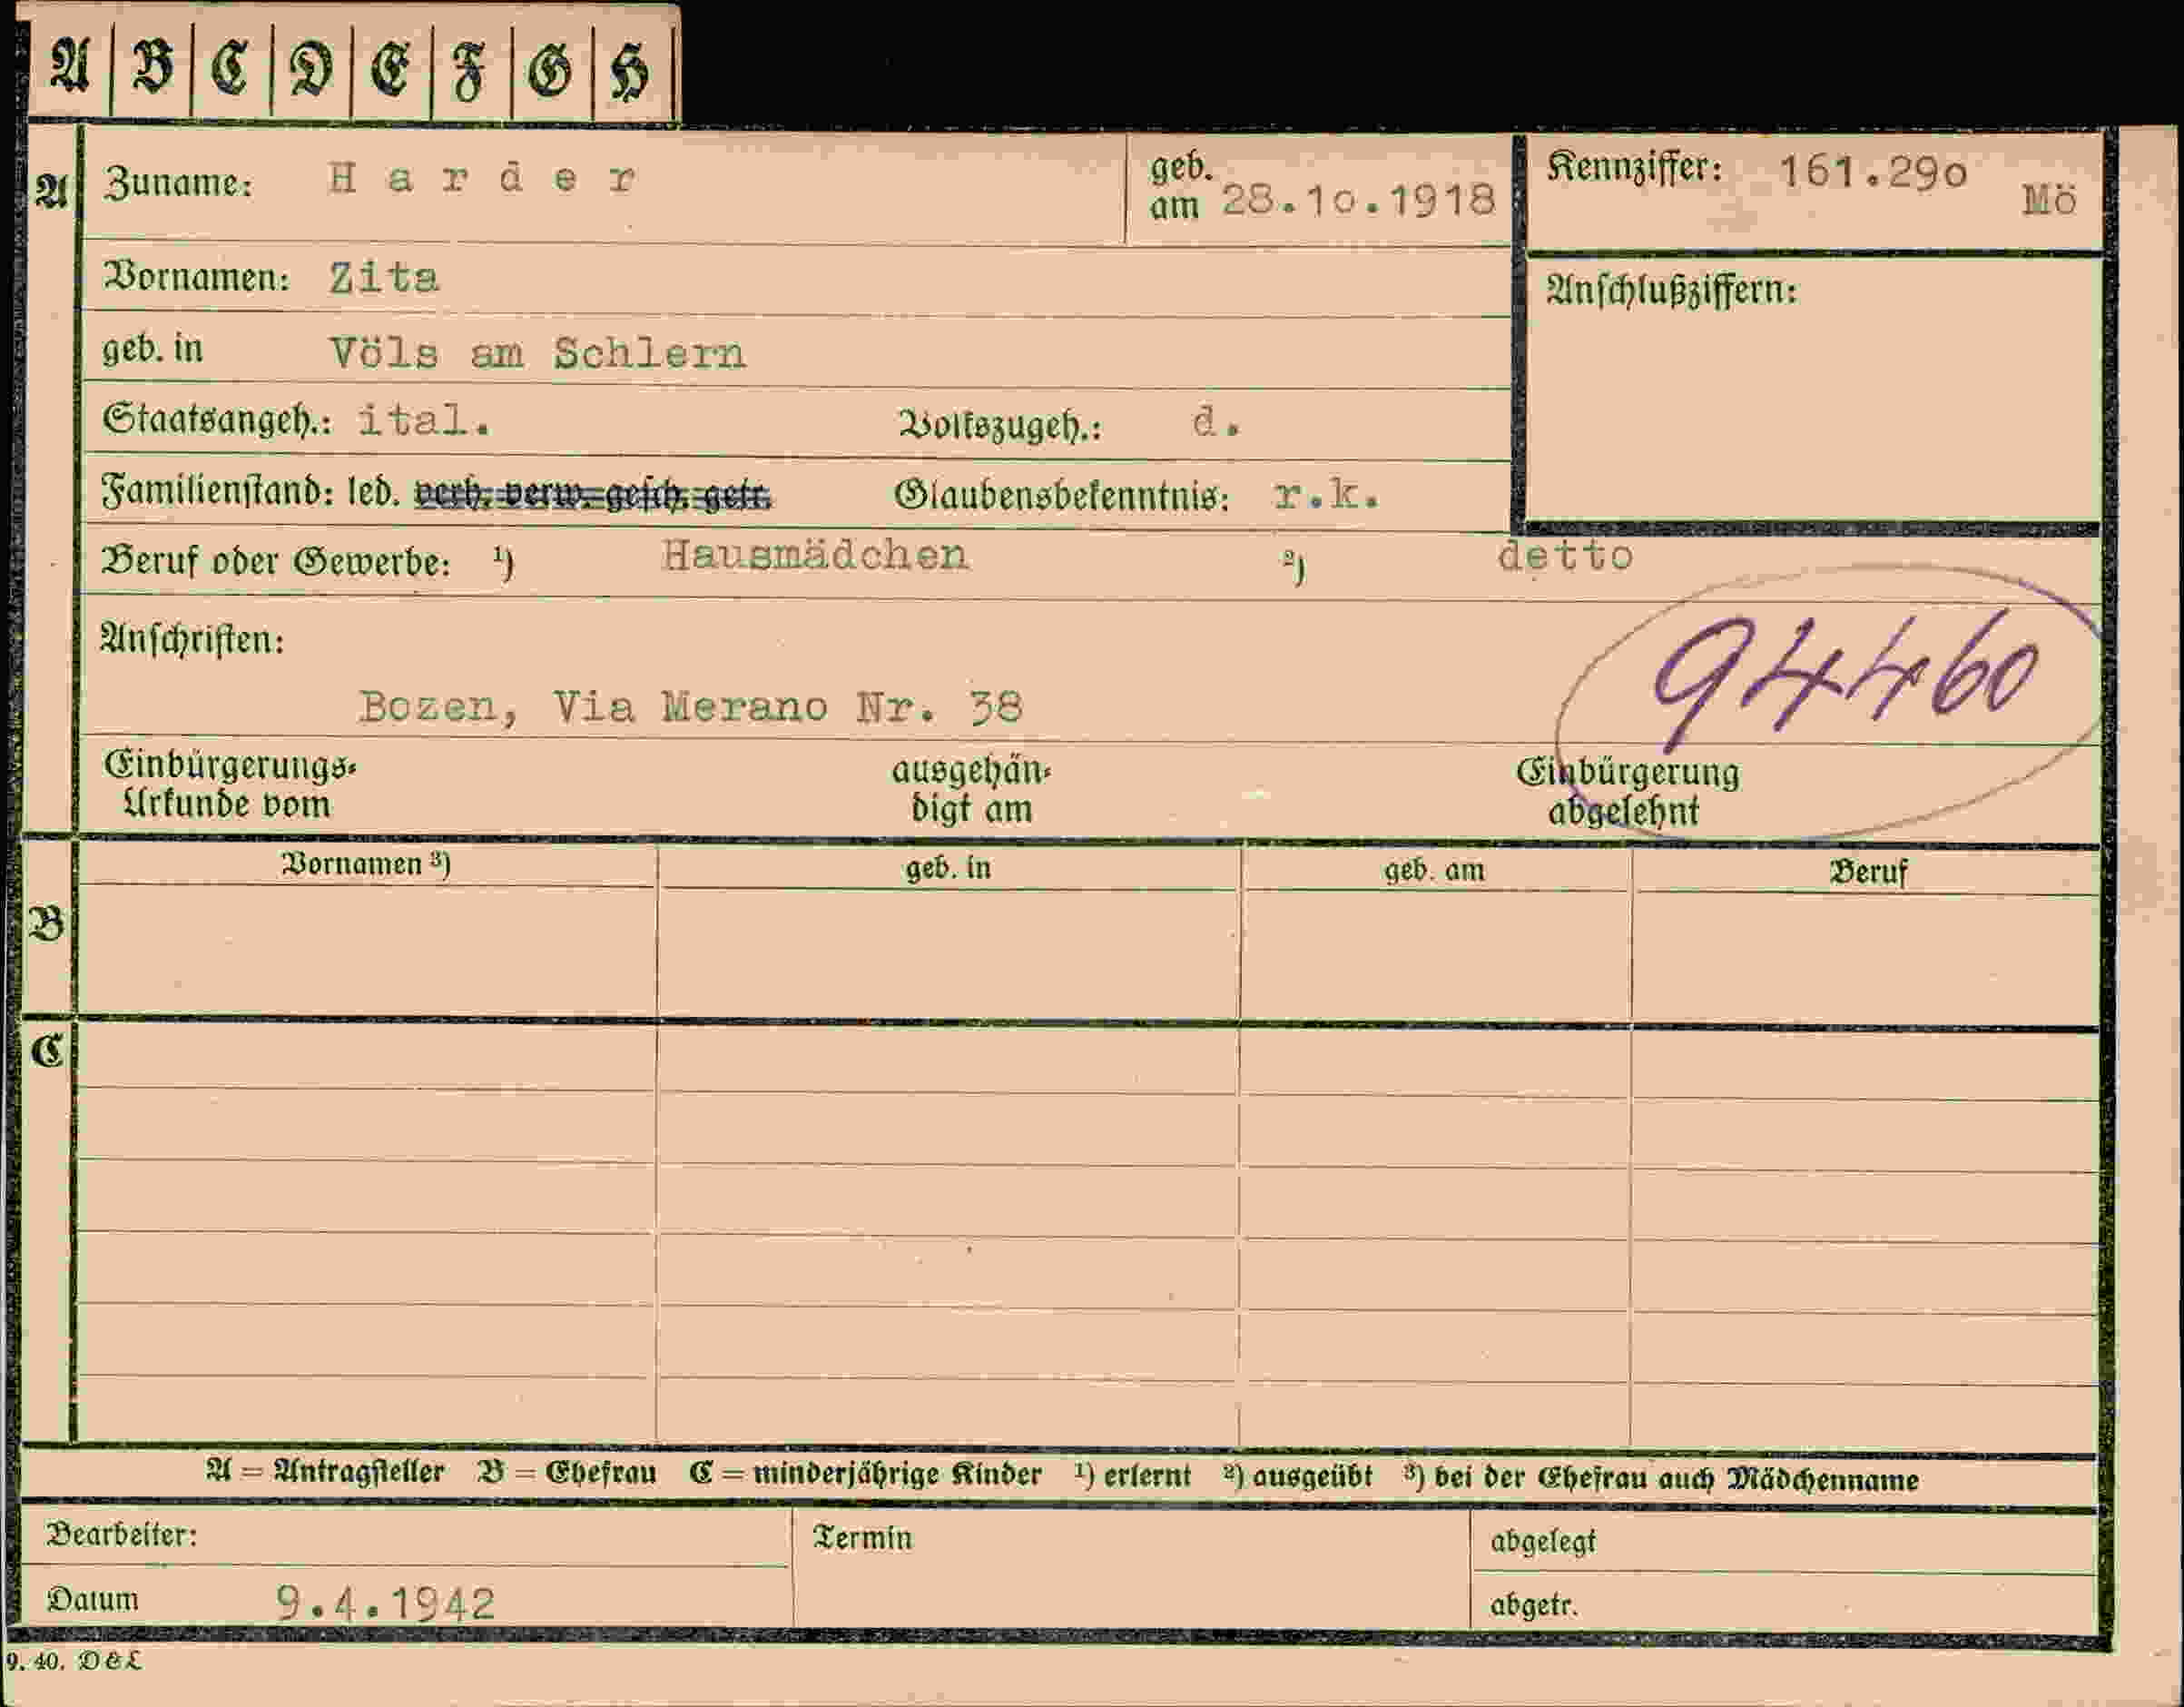 A B C D E F G H
A Zuname: Harder geb. am 28.10.1918 Kennziffer: 161.290 Mö
Vornamen: Zita
Anschlußziffern:
geb. in Völs am Schlern
Staatsangeh.: ital. Volkszugeh.: d.
Familienstand: led. verh. verw. gesch. getr. Glaubensbekenntnis: r.k.
Beruf oder Gewerbe: 1) Hausmädchen 2) detto
Anschriften:
94460
Bozen, Via Merano Nr. 38
Einbürgerungs- ausgehän- Einbürgerung
Urkunde vom digt am abgelehnt
Vornamen 3) geb. in geb. am Beruf
B
C
A = Antragsteller B = Ehefrau C = minderjährige Kinder 1) erlernt 2) ausgeübt 3) bei der Ehefrau auch Mädchenname
Bearbeiter: Termin abgelegt
Datum 9.4.1942 abgetr.
9. 40. D & L